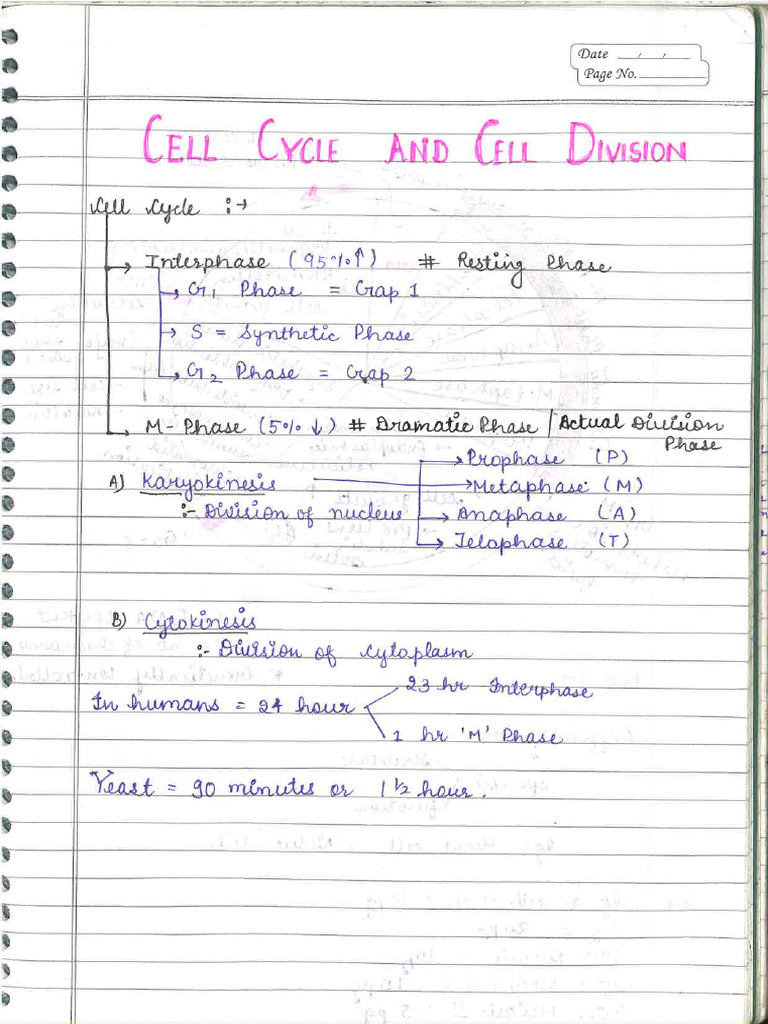 Date __/__/__
Page No.______
CELL CYCLE AND CELL DIVISION
Cell Cycle :→
→ Interphase (95%↑) # Resting Phase
→ G1 Phase = Gap 1
→ S = Synthetic Phase
→ G2 Phase = Gap 2
→ M-Phase (5%↓) # Dramatic Phase / Actual Division Phase
→ Prophase (P)
A) Karyokinesis → Metaphase (M)
:- Division of nucleus → Anaphase (A)
→ Telophase (T)
B) Cytokinesis
:- Division of cytoplasm
23 hr Interphase
In humans = 24 hour
1 hr 'M' Phase
Yeast = 90 minutes or 1 1/2 hour.